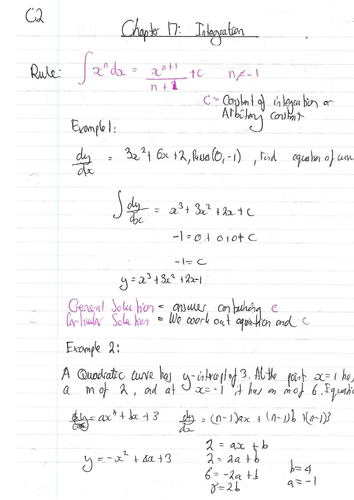 C2
Chapter 17: Integration
Rule: ∫ xⁿ dx = xⁿ⁺¹/n+1 + c n ≠ -1
C = Constant of integration or
Arbitrary constant
Example 1:
dy/dx = 3x² + 6x + 2, Passes (0, -1), Find equation of curve
∫ dy/dx = x³ + 3x² + 2x + c
-1 = 0 + 0 + 0 + C
-1 = C
y = x³ + 3x² + 2x - 1
General Solution = answer containing c
Particular Solution = We work out equation and c
Example 2:
A Quadratic curve has y-intercept of 3. At the point x = 1 has
a m of 2, and at x = -1 it has an m of 6. Equation
y = ax² + bx + 3 dy/dx = (n-1)ax + (n-1)b + (n-1)3
2 = ax + b
y = -x² + 4x + 3 2 = 2a + b
6 = -2a + b b = 4
8 = 2b a = -1